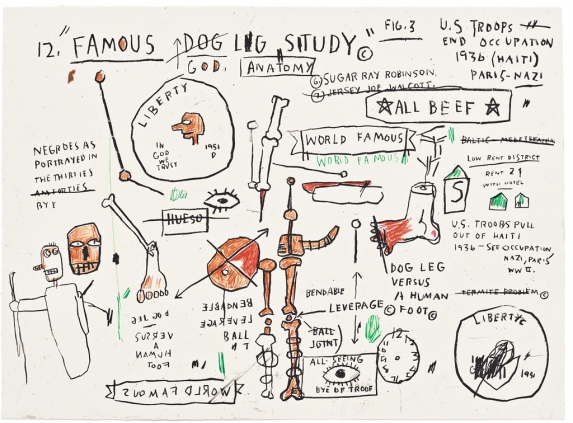 12. "FAMOUS DOG LEG STUDY" ©
FIG. 3
GOD. ANATOMY
U.S TROOPS
END OCCUPATION
1936 (HAITI)
PARIS-NAZI
6) SUGAR RAY ROBINSON.
7) JERSEY JOE WALCOTT.
ALL BEEF
LIBERTY
IN
GOD
WE
TRUST
1951
D
WORLD FAMOUS
WORLD FAMOUS
LOW RENT DISTRICT
RENT 2
WITH HOTEL
S
NEGROES AS
PORTRAYED IN
THE THIRTIES
BY
HUESO
U.S. TROOPS PULL
OUT OF HAITI
1936 - SEE OCCUPATION
NAZI, PARIS
WW II.
TERMITE PROBLEM ©
DOG LEG
VERSUS
A HUMAN
© FOOT ©
BENDABLE
LEVERAGE
BALL
JOINT
BENDABLE
LEVERAGE
BALL
DOG LEG
VERSUS
A
HUMAN
FOOT
WORLD FAMOUS
ALL-SEEING
EYE OF TROOF
LIBERTY
1951